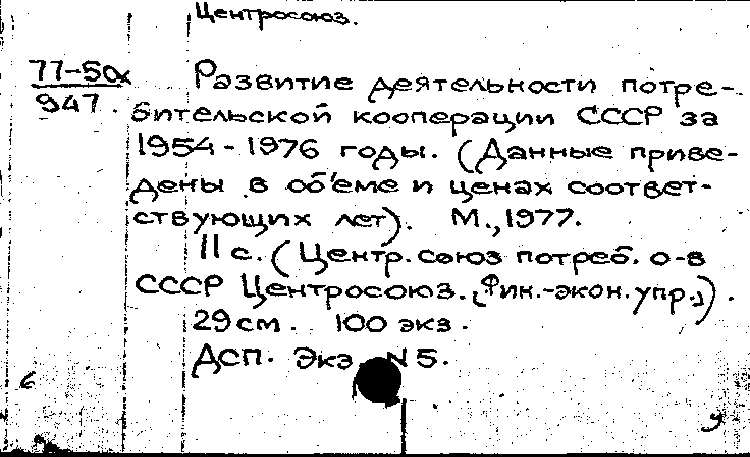 Центросоюз.
77-50х
947.
Развитие деятельности потре-
бительской кооперации СССР за
1954-1976 годы. (Данные приве-
дены в об'еме и ценах соответ-
ствующих лет). М., 1977.
11 с. (Центр. союз потреб. о-в
СССР Центросоюз. Фин.-экон. упр.).
29 см. 100 экз.
ДСП. Экз N 5.
б